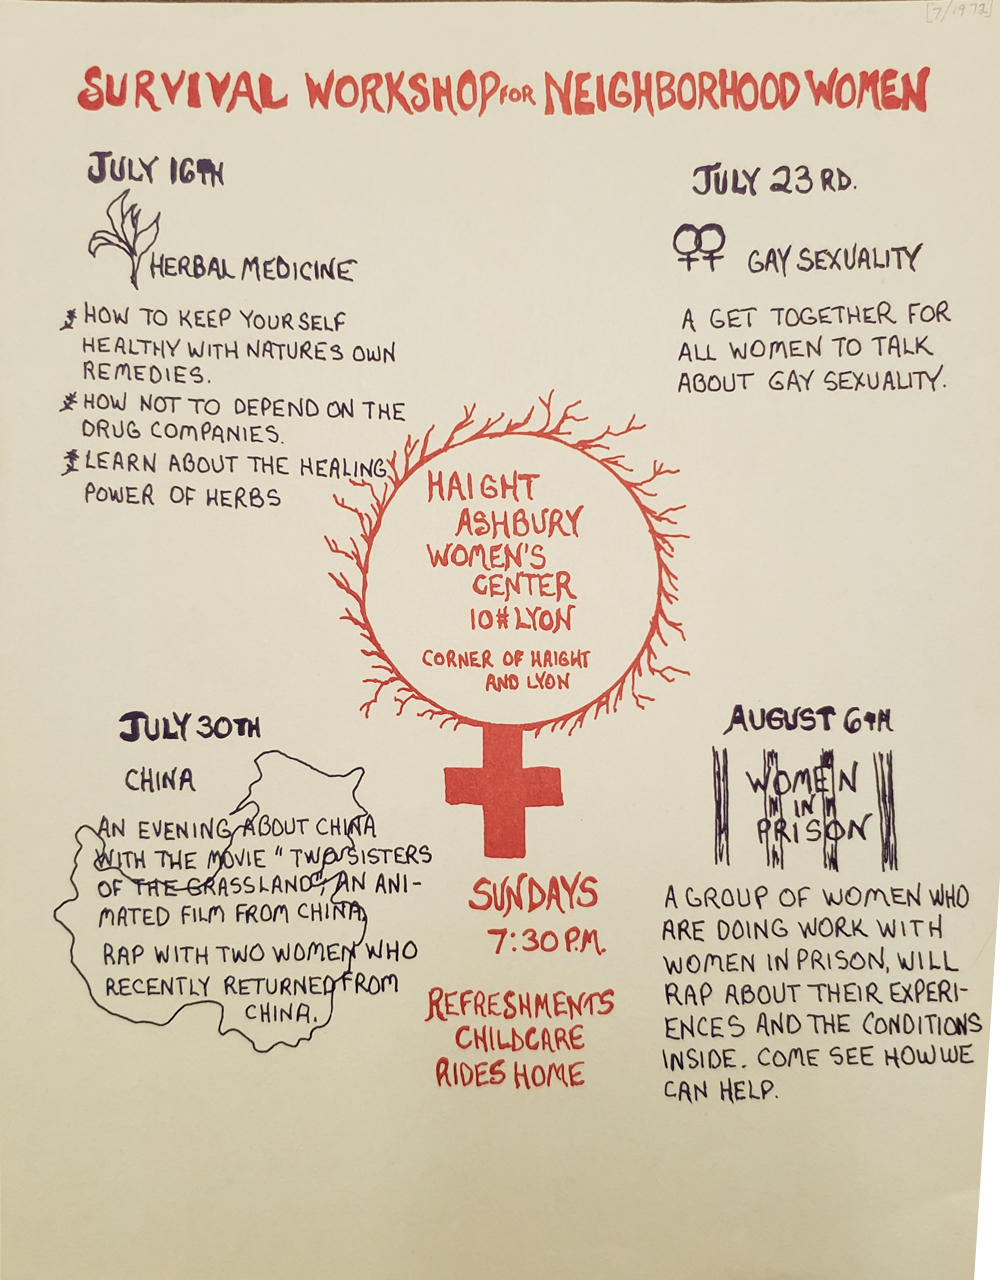 [7/1972]
SURVIVAL WORKSHOP FOR NEIGHBORHOOD WOMEN
JULY 16TH
HERBAL MEDICINE
* HOW TO KEEP YOURSELF
HEALTHY WITH NATURES OWN
REMEDIES.
* HOW NOT TO DEPEND ON THE
DRUG COMPANIES.
* LEARN ABOUT THE HEALING
POWER OF HERBS
JULY 23RD.
GAY SEXUALITY
A GET TOGETHER FOR
ALL WOMEN TO TALK
ABOUT GAY SEXUALITY.
HAIGHT
ASHBURY
WOMEN'S
CENTER
10# LYON
CORNER OF HAIGHT
AND LYON
JULY 30TH
CHINA
AN EVENING ABOUT CHINA
WITH THE MOVIE "TWO SISTERS
OF THE GRASSLAND", AN ANI-
MATED FILM FROM CHINA,
RAP WITH TWO WOMEN WHO
RECENTLY RETURNED FROM
CHINA.
SUNDAYS
7:30 P.M.
REFRESHMENTS
CHILDCARE
RIDES HOME
AUGUST 6TH
WOMEN
IN
PRISON
A GROUP OF WOMEN WHO
ARE DOING WORK WITH
WOMEN IN PRISON, WILL
RAP ABOUT THEIR EXPERI-
ENCES AND THE CONDITIONS
INSIDE. COME SEE HOW WE
CAN HELP.